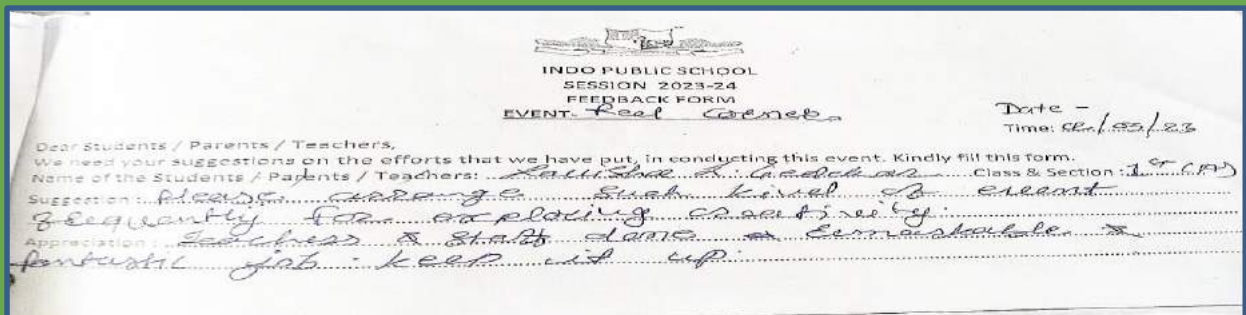 INDO PUBLIC SCHOOL
SESSION 2023-24
FEEDBACK FORM
EVENT- Reel Corner Date -
Time: /05/23
Dear Students / Parents / Teachers,
We need your suggestions on the efforts that we have put, in conducting this event. Kindly fill this form.
Name of the Students / Parents / Teachers: Class & Section : 1st (A)
Suggestion : Please arrange such kind of event
frequently for exploring creativity.
Appreciation : Teachers & staff done a remarkable &
fantastic job. keep it up.